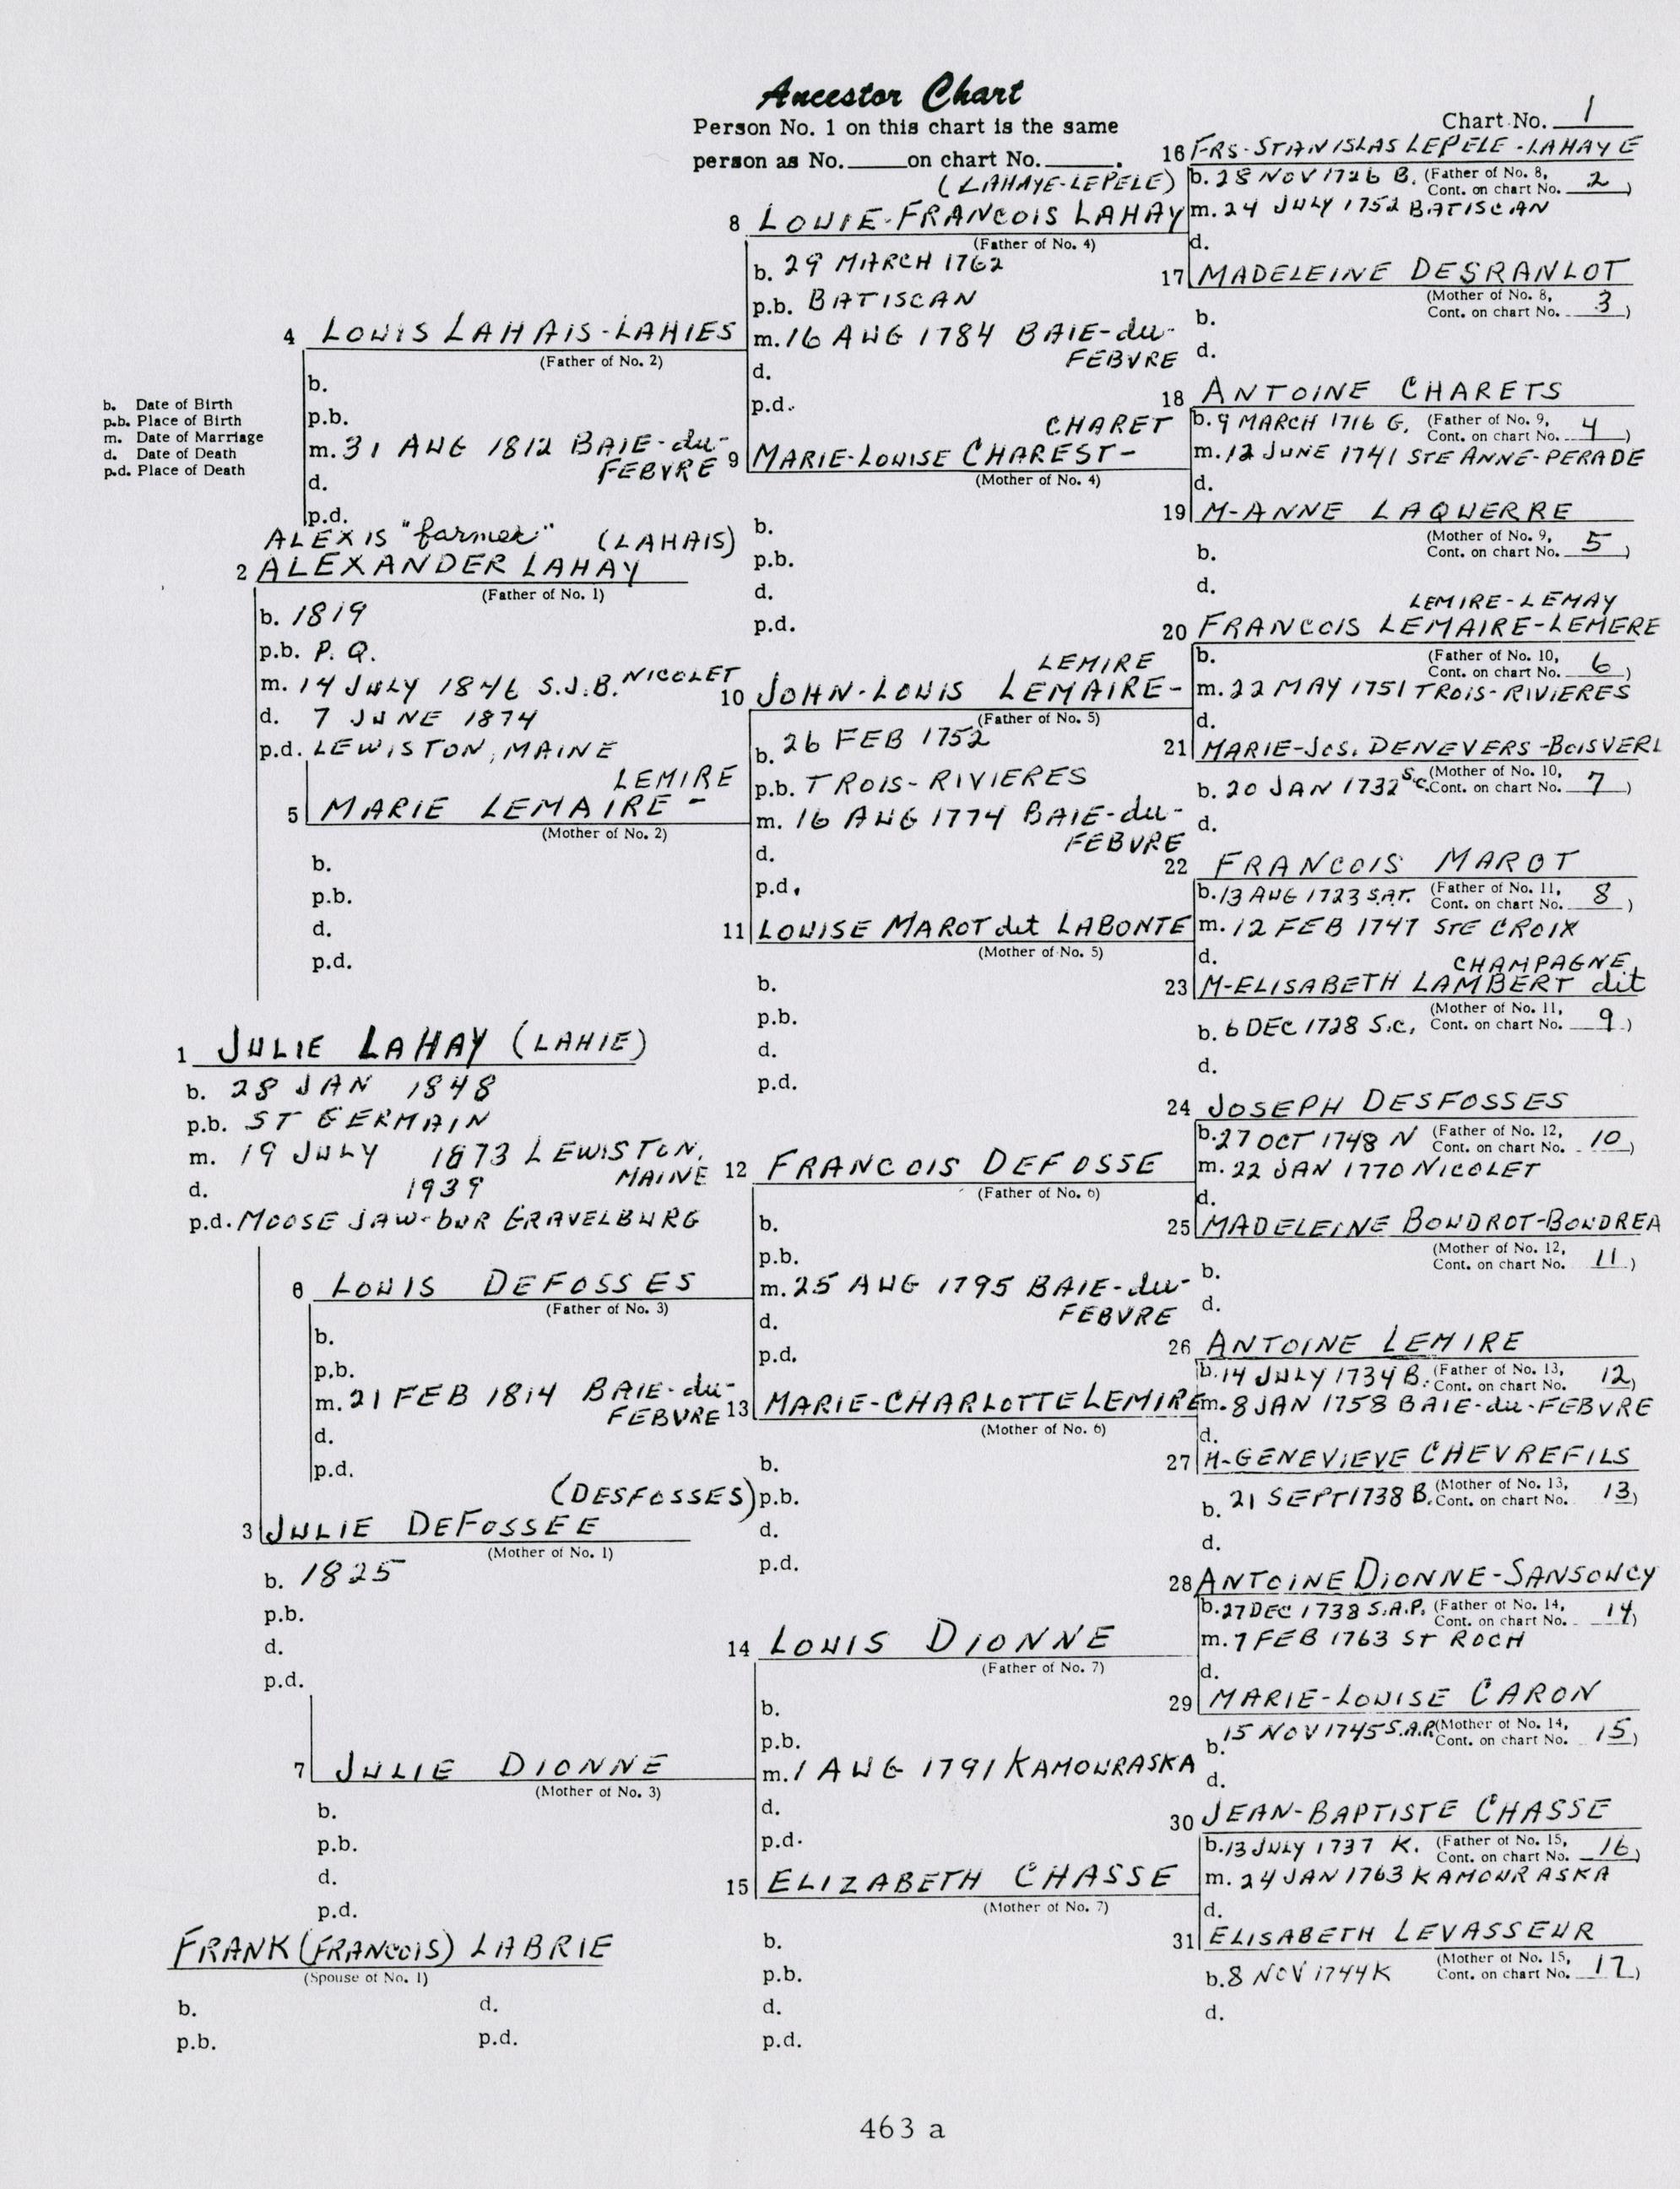 Ancestor Chart
Person No. 1 on this chart is the same
person as No. on chart No. .
Chart No. 1
b. Date of Birth
p.b. Place of Birth
m. Date of Marriage
d. Date of Death
p.d. Place of Death
1 JULIE LAHAY (LAHIE)
b. 28 JAN 1848
p.b. ST GERMAIN
m. 19 JULY 1873 LEWISTON,
MAINE
d. 1939
p.d. MOOSE JAW-bur GRAVELBURG
ALEXIS "farmer" (LAHAIS)
2 ALEXANDER LAHAY
(Father of No. 1)
b. 1819
p.b. P. Q.
m. 14 JULY 1846 S.J.B. NICOLET
d. 7 JUNE 1874
p.d. LEWISTON, MAINE
(DESFOSSES)
3 JULIE DEFOSSEE
(Mother of No. 1)
b. 1825
p.b.
d.
p.d.
FRANK (FRANCOIS) LABRIE
(Spouse of No. 1)
b. d.
p.b. p.d.
4 LOUIS LAHAIS-LAHIES
(Father of No. 2)
b.
p.b.
m. 31 AUG 1812 BAIE-du-
FEBVRE
d.
p.d.
LEMIRE
5 MARIE LEMAIRE -
(Mother of No. 2)
b.
p.b.
d.
p.d.
6 LOUIS DEFOSSES
(Father of No. 3)
b.
p.b.
m. 21 FEB 1814 BAIE-du-
FEBVRE
d.
p.d.
7 JULIE DIONNE
(Mother of No. 3)
b.
p.b.
d.
p.d.
(LAHAYE-LEPELE)
8 LOUIE-FRANCOIS LAHAY
(Father of No. 4)
b. 29 MARCH 1762
p.b. BATISCAN
m. 16 AUG 1784 BAIE-du-
FEBVRE
d.
p.d.
CHARET
9 MARIE-LOUISE CHAREST-
(Mother of No. 4)
b.
p.b.
d.
p.d.
LEMIRE
10 JOHN-LOUIS LEMAIRE-
(Father of No. 5)
b. 26 FEB 1752
p.b. TROIS-RIVIERES
m. 16 AUG 1774 BAIE-du-
FEBVRE
d.
p.d.
11 LOUISE MAROT dit LABONTE
(Mother of No. 5)
b.
p.b.
d.
p.d.
12 FRANCOIS DEFOSSE
(Father of No. 6)
b.
p.b.
m. 25 AUG 1795 BAIE-du-
FEBVRE
d.
p.d.
13 MARIE-CHARLOTTE LEMIRE
(Mother of No. 6)
b.
p.b.
d.
p.d.
14 LOUIS DIONNE
(Father of No. 7)
b.
p.b.
m. 1 AUG 1791 KAMOURASKA
d.
p.d.
15 ELIZABETH CHASSE
(Mother of No. 7)
b.
p.b.
d.
p.d.
16 FRS-STANISLAS LEPELE-LAHAYE
b. 28 NOV 1726 B. (Father of No. 8,
Cont. on chart No. 2)
m. 24 JULY 1752 BATISCAN
d.
17 MADELEINE DESRANLOT
(Mother of No. 8,
Cont. on chart No. 3)
b.
d.
18 ANTOINE CHARETS
b. 9 MARCH 1716 G. (Father of No. 9,
Cont. on chart No. 4)
m. 12 JUNE 1741 STE ANNE-PERADE
d.
19 M-ANNE LAQUERRE
(Mother of No. 9,
Cont. on chart No. 5)
b.
d.
LEMIRE-LEMAY
20 FRANCOIS LEMAIRE-LEMERE
b. (Father of No. 10,
Cont. on chart No. 6)
m. 22 MAY 1751 TROIS-RIVIERES
d.
21 MARIE-JOS. DENEVERS-BOISVERL
(Mother of No. 10,
b. 20 JAN 1732 S.C. Cont. on chart No. 7)
d.
22 FRANCOIS MAROT
b. 13 AUG 1723 S.A.T. (Father of No. 11,
Cont. on chart No. 8)
m. 12 FEB 1747 STE CROIX
d.
CHAMPAGNE
23 M-ELISABETH LAMBERT dit
(Mother of No. 11,
b. 6 DEC 1728 S.C. Cont. on chart No. 9)
d.
24 JOSEPH DESFOSSES
b. 27 OCT 1748 N (Father of No. 12,
Cont. on chart No. 10)
m. 22 JAN 1770 NICOLET
d.
25 MADELEINE BOUDROT-BOUDREA
(Mother of No. 12,
Cont. on chart No. 11)
b.
d.
26 ANTOINE LEMIRE
b. 14 JULY 1734 B. (Father of No. 13,
Cont. on chart No. 12)
m. 8 JAN 1758 BAIE-du-FEBVRE
d.
27 M-GENEVIEVE CHEVREFILS
(Mother of No. 13,
b. 21 SEPT 1738 B. Cont. on chart No. 13)
d.
28 ANTOINE DIONNE-SANSOUCY
b. 27 DEC 1738 S.A.P. (Father of No. 14,
Cont. on chart No. 14)
m. 7 FEB 1763 ST ROCH
d.
29 MARIE-LOUISE CARON
b. 15 NOV 1745 S.A.P. (Mother of No. 14,
Cont. on chart No. 15)
d.
30 JEAN-BAPTISTE CHASSE
b. 13 JULY 1737 K. (Father of No. 15,
Cont. on chart No. 16)
m. 24 JAN 1763 KAMOURASKA
d.
31 ELISABETH LEVASSEUR
(Mother of No. 15,
b. 8 NOV 1744 K Cont. on chart No. 17)
d.
463 a